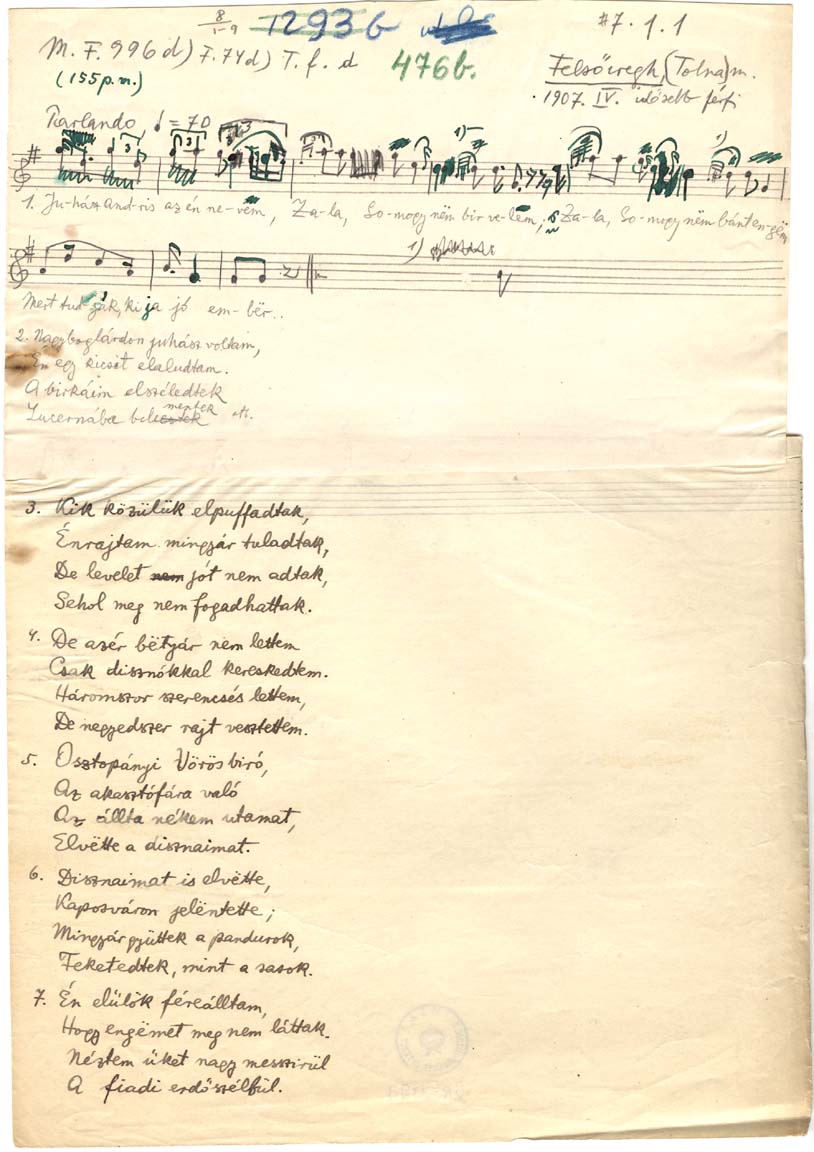 8
1-9
1293 b
#7. 1. 1
M. F. 996 d) F. 74 d) T. f. d
476b.
(155 p.m.)
Felsőiregh, (Tolna) m.
1907. IV. idősebb férfi
Parlando ♩ = 70
3 3 3 3 1) 1)
1. Ju-hász And-ris az én ne-vem, Za-la, So-mogy nëm bir ve-lem; Za-la, So-mogy nëm bánt en-gëm
1)
Mert tud-ják, ki ja jó em-bër..
2. Nagyboglárdon juhász voltam,
Én egy kicsit elaludtam.
A birkáim elszéledtek
Lucernába bele mentek stb.
3. Kik közülük elpuffadtak,
Énrajtam mingyár tuladtak,
De levelet nem jót nem adtak,
Sehol meg nem fogadhattak.
4. De azér bëtyár nem lettem
Csak disznókkal kereskedtem.
Háromszor szerencsés lettem,
De negyedszer rajt vesztettem.
5. Osztopányi Vörös biró,
Az akasztófára való
Az állta nékem utamat,
Elvëtte a disznaimat.
6. Disznaimat is elvëtte,
Kaposváron jelëntette;
Mingyár gyüttek a pandurok,
Feketedtek, mint a sasok.
7. Én elülök féreálltam,
Hogy engëmet meg nem láttak.
Néztem üket nagy messzirül
A fiadi erdőszélbül.